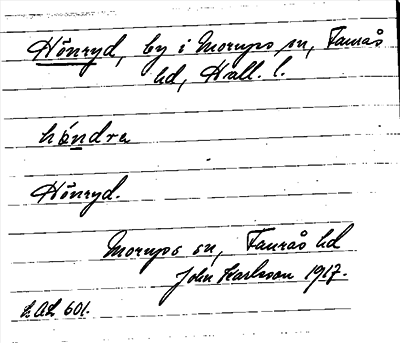 Hönryd, by i Morups sn, Faurås
hd, Hall. l.
hö́ndra
Hönryd.
Morups sn, Faurås hd
John Karlsson 1917.
LAL 601.